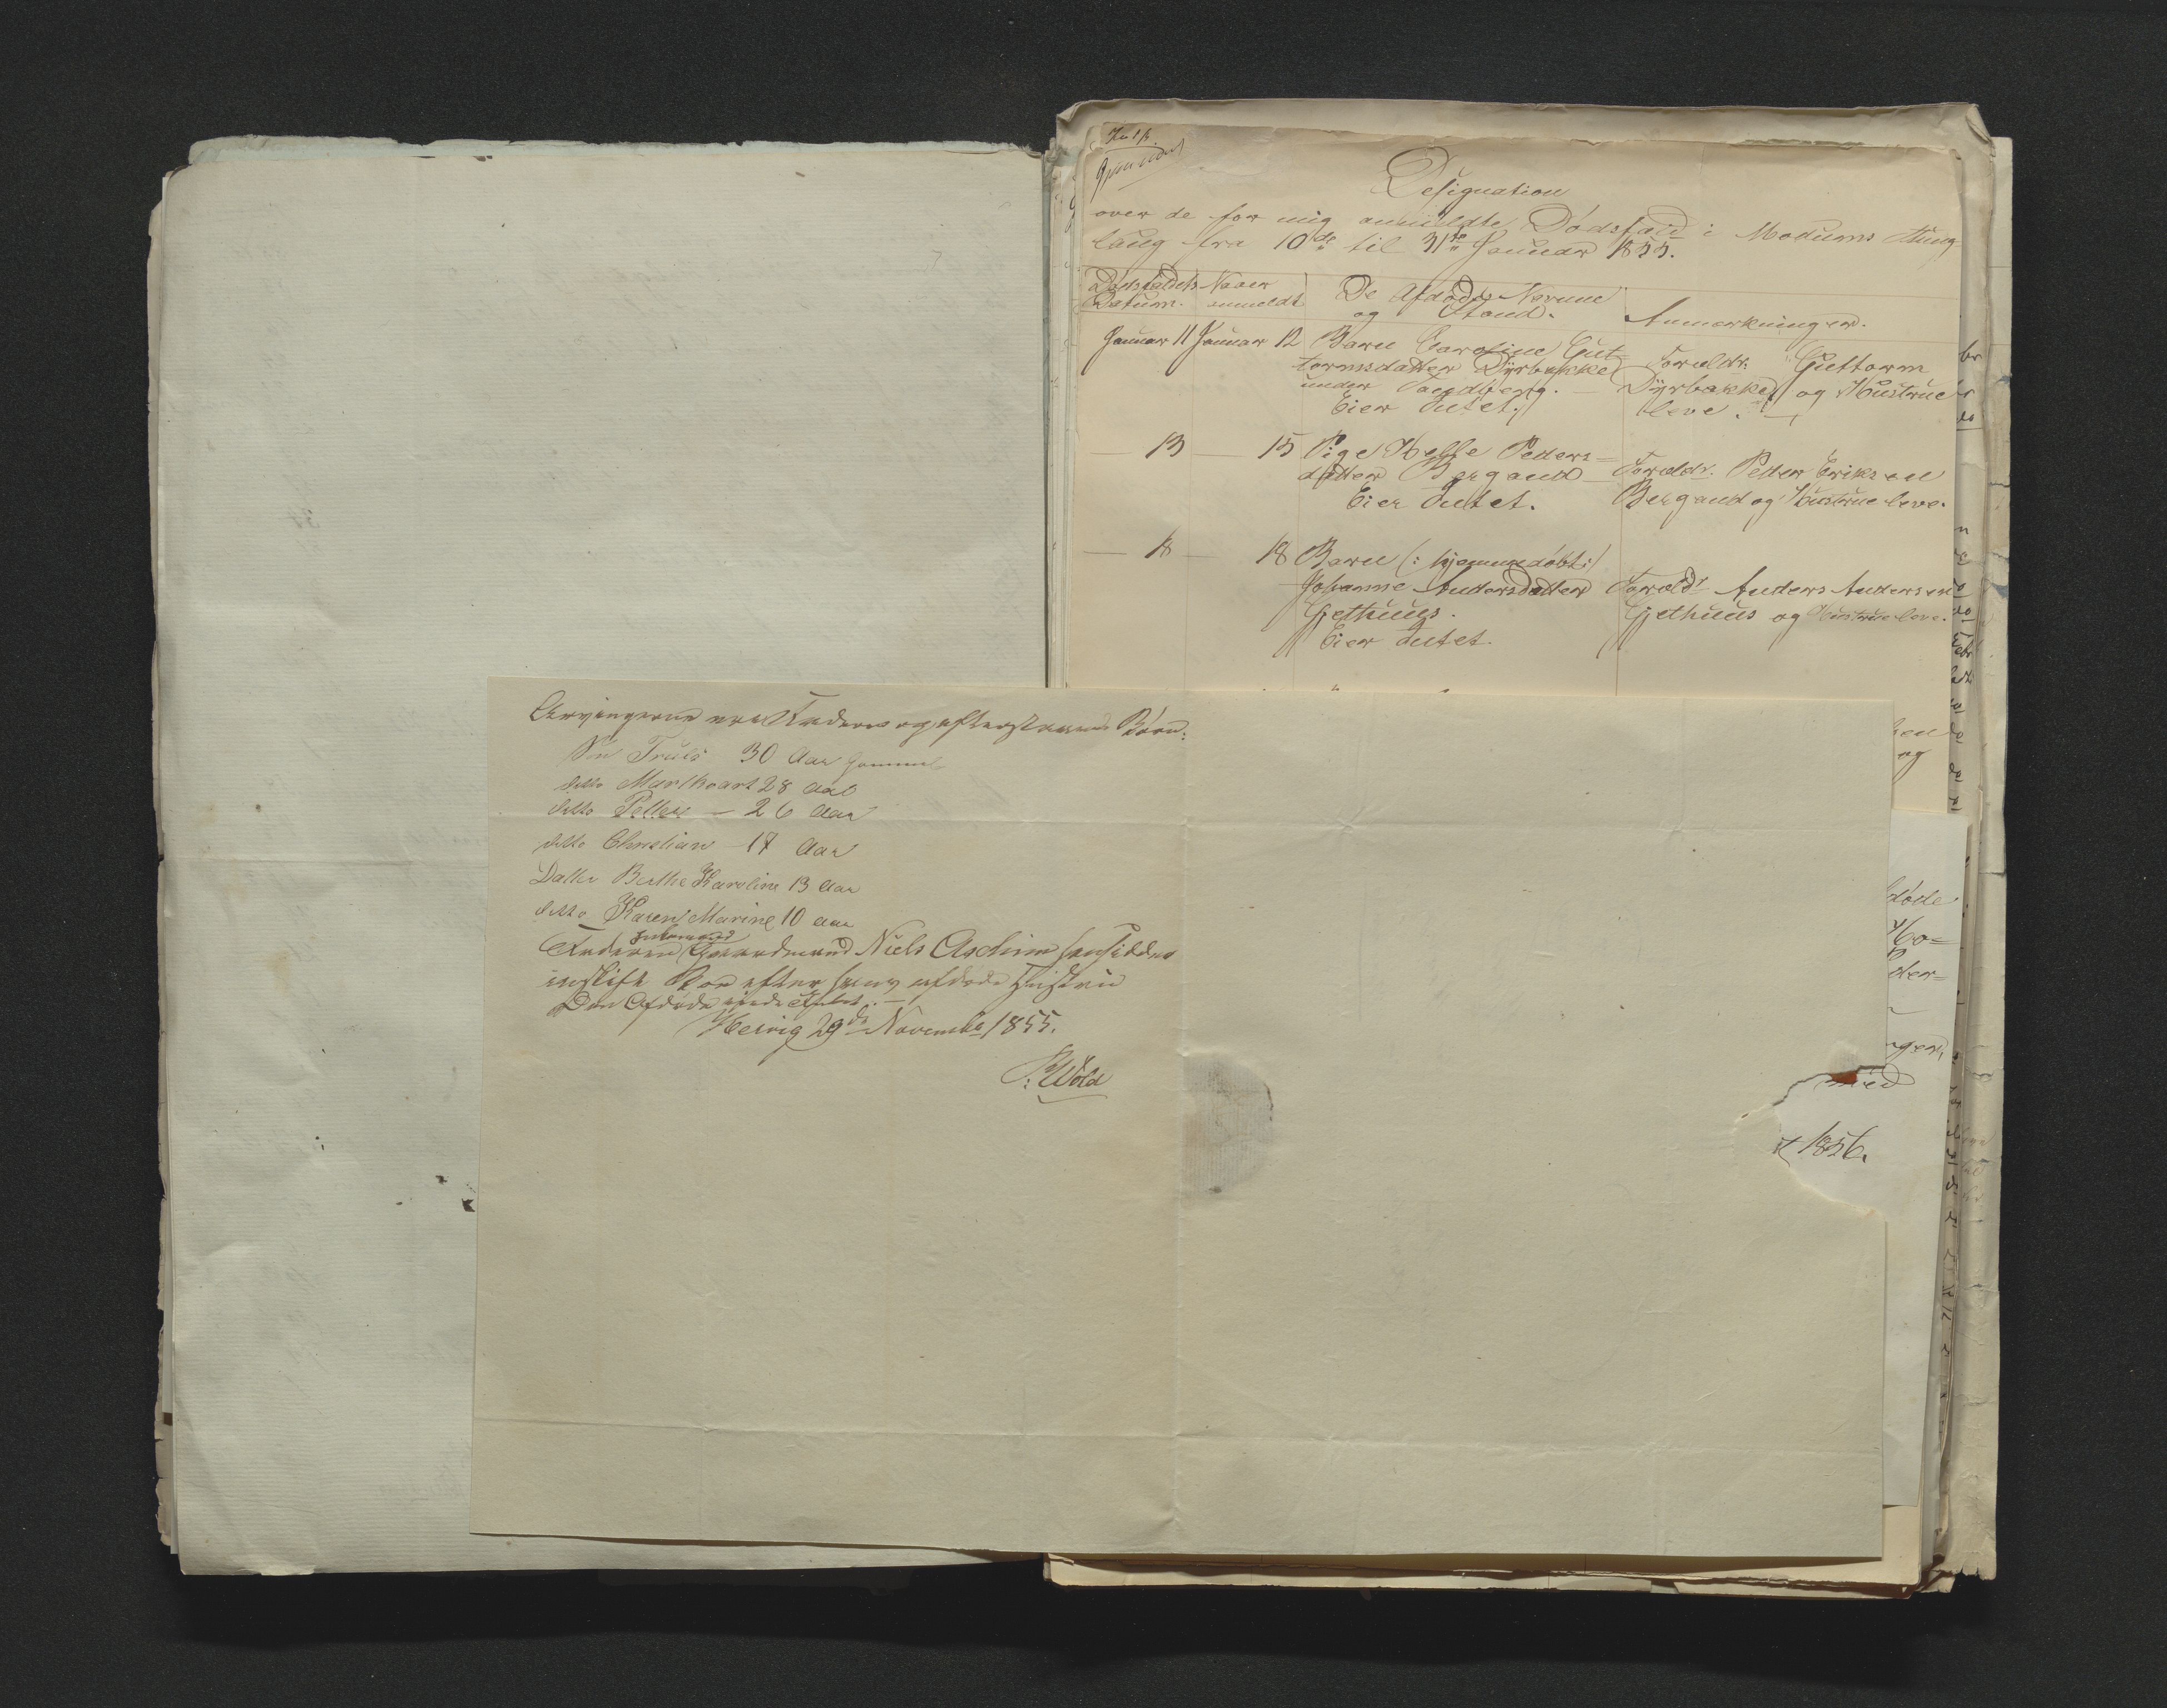 Designation
over de for mig anmeldte Dødsfald i Modums Thing-
laug fra 10de til 31te Januar 1855.
Dødsfaldets Datum.
Naar anmeldt
De Afdødes Navne og Stand.
Anmærkninger.
Januar 11 Januar 12 Barn Caroline Gut-
tormsdatter Dyrbakke
under Sandberg.
Eier Intet.
Foreldr: Guttorm
Dyrbakke og Hustrue
leve.
13 15 Pige Helle Peders-
datter Bergand
Eier Intet.
Foreldr. Peder Eriksen
Bergand og Hustrue leve.
18 18 Barn (: hjemmedøbt :)
Johanne Andersdatter
Gjethuus.
Eier Intet.
Foreldr Anders Andersen
Gjethuus og Hustrue leve.
Arvingerne ere Faderen og efterladende Børn:
Søn Truls 30 Aar gammel
ditto 28 Aar
ditto Petter - 26 Aar
ditto Christian - 17 Aar
Datter Berthe Karoline 13 Aar
ditto Karen Marine 10 Aar
Faderen Gaardmand Niels Aschim
efter afdøde Hustru
Den Afdøde eiede Intet. -
29de November 1855.
Wold
døde
Ho-
der-
med
1856.